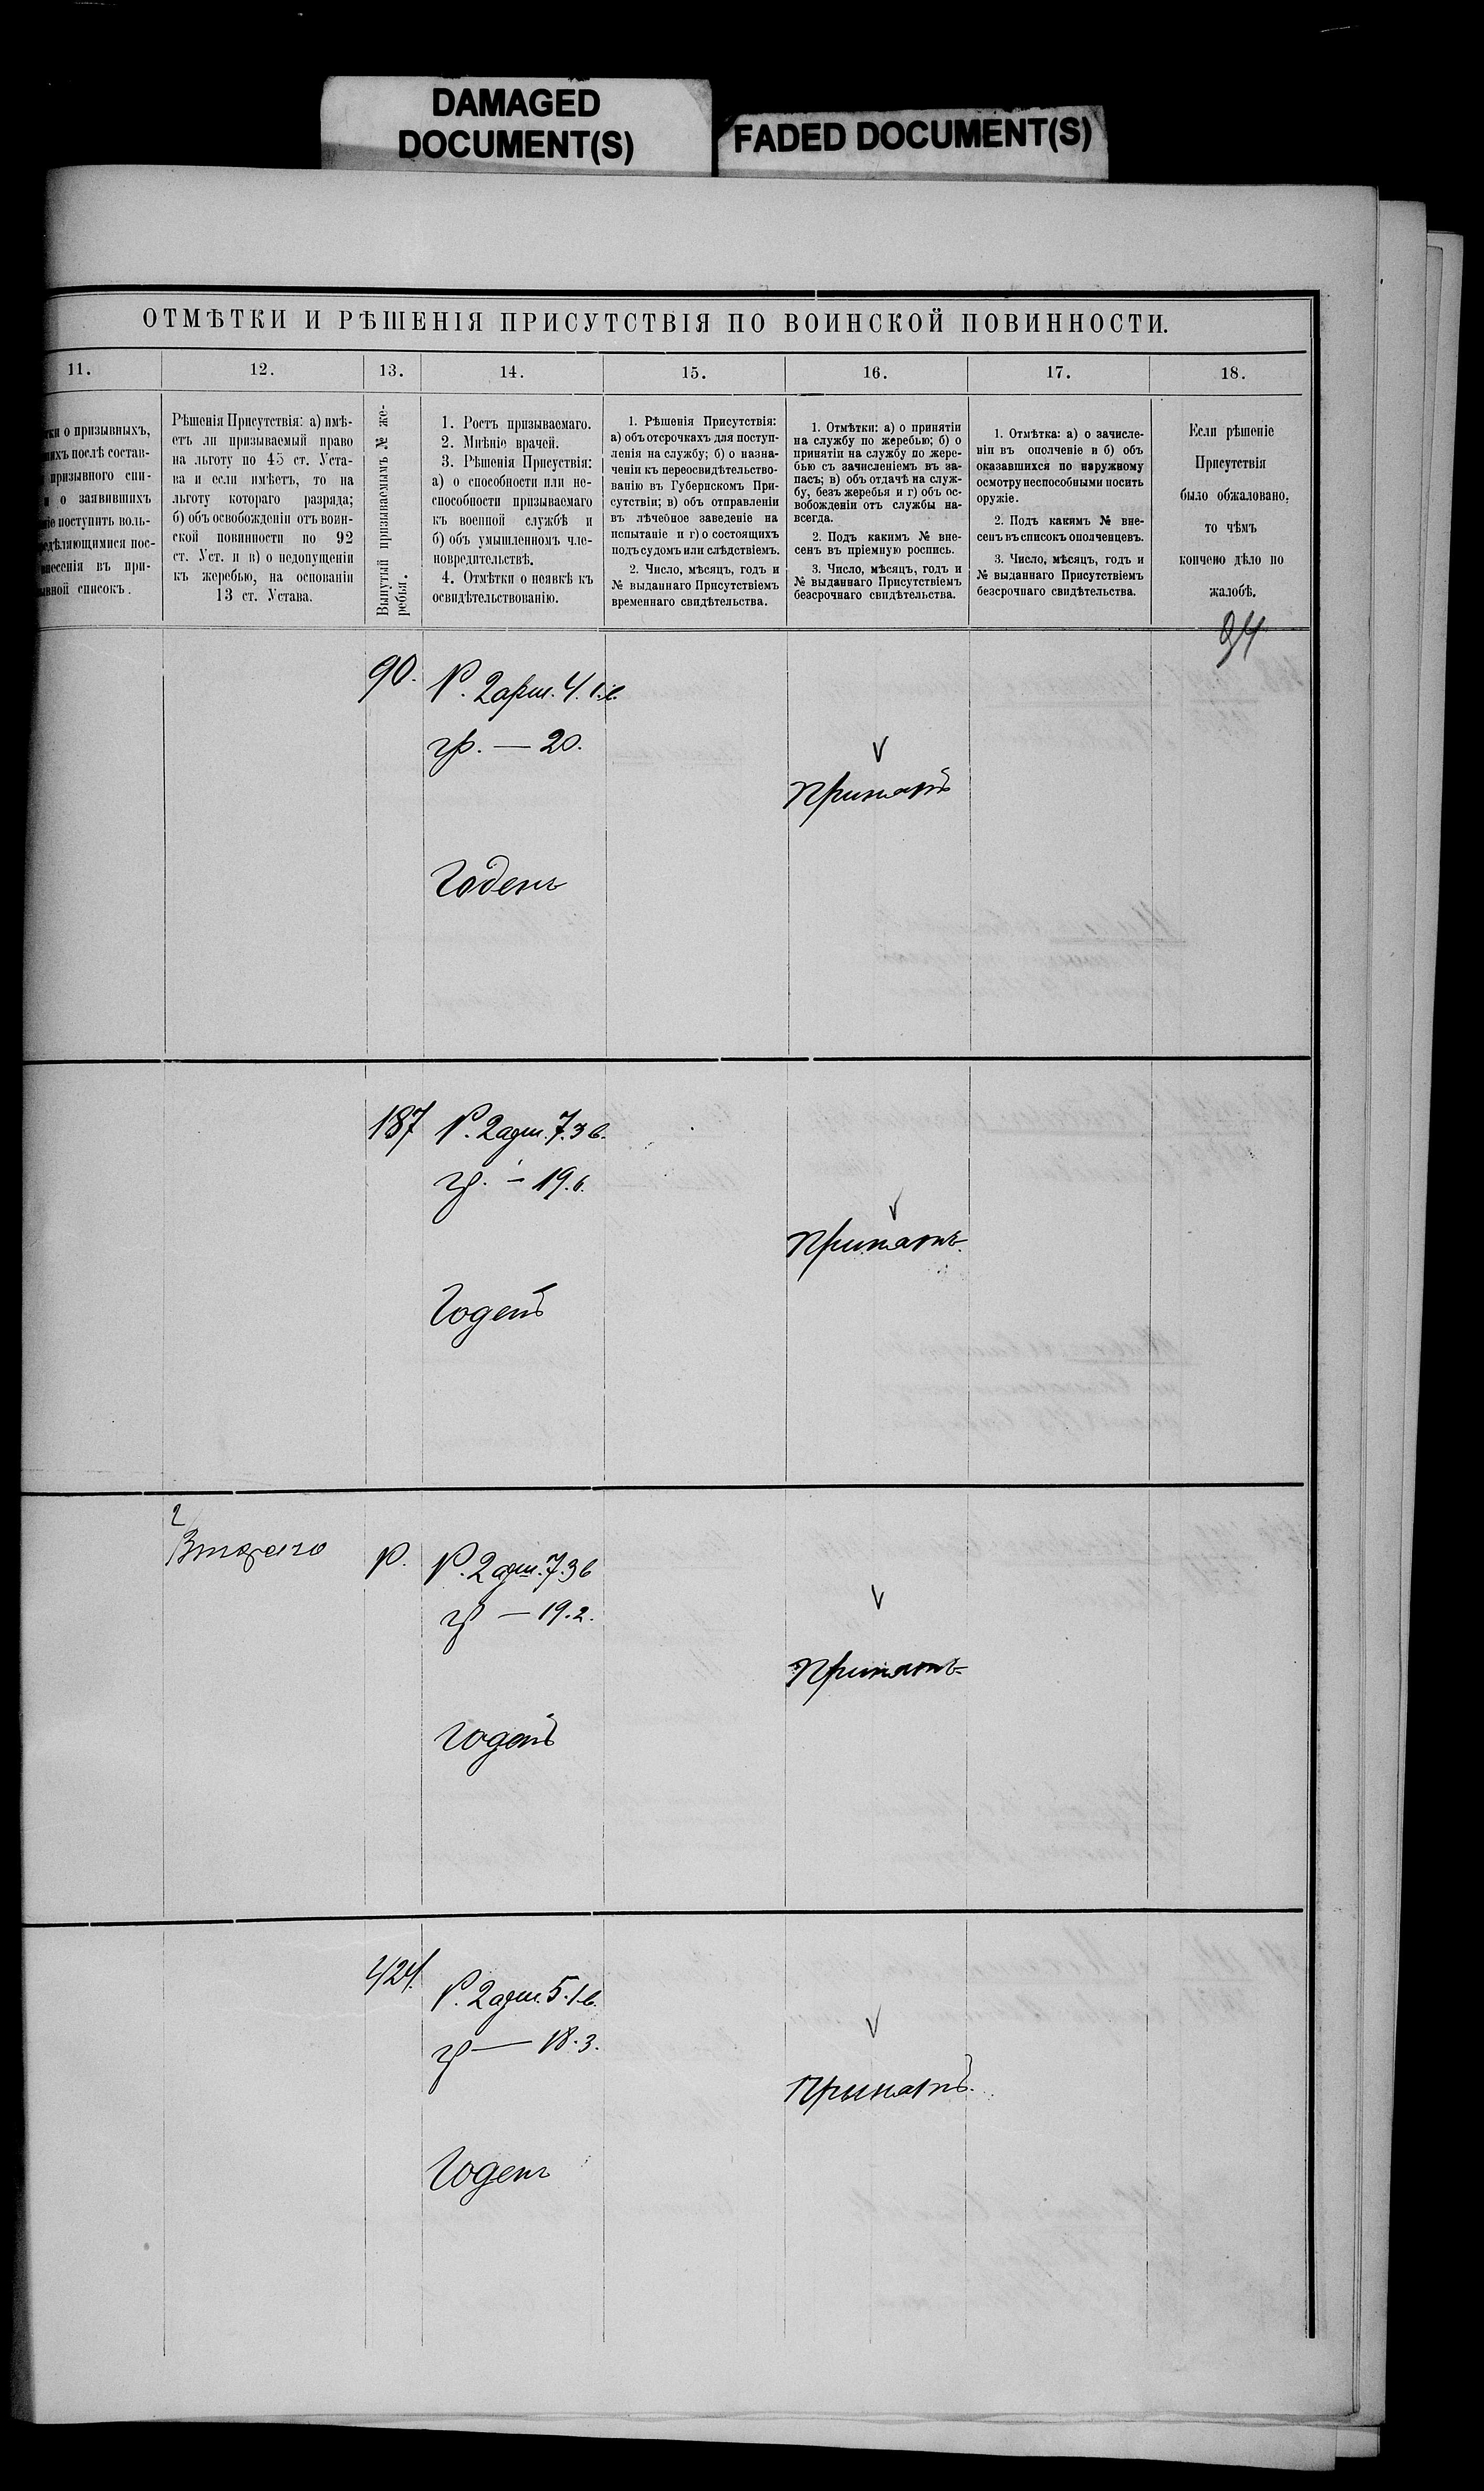 DAMAGED
DOCUMENT(S)
FADED DOCUMENT(S)
ОТМѢТКИ И РѢШЕНІЯ ПРИСУТСТВІЯ ПО ВОИНСКОЙ ПОВИННОСТИ.
11.
12.
13.
14.
15.
16.
17.
18.
о призывныхъ,
послѣ состав-
призывного спи-
о заявившихъ
поступить воль-
въ при-
списокъ.
Рѣшенія Присутствія: а) имѣ-
етъ ли призываемый право
на льготу по 45 ст. Уста-
ва и если имѣетъ, то на
льготу котораго разряда;
б) объ освобожденіи отъ воин-
ской повинности по 92
ст. Уст. и в) о недопущеніи
къ жеребью, на основаніи
13 ст. Устава.
Вынутый призываемымъ № же-
ребья.
1. Ростъ призываемаго.
2. Мнѣніе врачей.
3. Рѣшенія Присуствія:
а) о способности или не-
способности призываемаго
къ военной службѣ и
б) объ умышленномъ чле-
новредительствѣ.
4. Отмѣтки о неявкѣ къ
освидѣтельствованію.
1. Рѣшенія Присутствія:
а) объ отсрочкахъ для поступ-
ленія на службу; б) о назна-
ченіи къ переосвидѣтельство-
ванію въ Губернскомъ При-
сутствіи; в) объ отправленіи
въ лѣчебное заведеніе на
испытаніе и г) о состоящихъ
подъ судомъ или слѣдствіемъ.
2. Число, мѣсяцъ, годъ и
№ выданнаго Присутствіемъ
временнаго свидѣтельства.
1. Отмѣтки: а) о принятіи
на службу по жеребью; б) о
принятіи на службу по жере-
бью съ зачисленіемъ въ за-
пасъ; в) объ отдачѣ на служ-
бу, безъ жеребья и г) объ ос-
вобожденіи отъ службы на-
всегда.
2. Подъ какимъ № вне-
сенъ въ пріемную роспись.
3. Число, мѣсяцъ, годъ и
№ выданнаго Присутствіемъ
безсрочнаго свидѣтельства.
1. Отмѣтка: а) о зачисле-
ніи въ ополченіе и б) объ
оказавшихся по наружному
осмотру неспособными носить
оружіе.
2. Подъ какимъ № вне-
сенъ въ списокъ ополченцевъ.
3. Число, мѣсяцъ, годъ и
№ выданнаго Присутствіемъ
безсрочнаго свидѣтельства.
Если рѣшеніе
Присутствія
было обжаловано,
то чѣмъ
кончено дѣло по
жалобѣ.
90. Р. 2 арш. 4. 1. в.
гр. — 20.
V
Принятъ
Годенъ
187 Р. 2 арш. 7. 3 в.
гр. — 19. 6.
V
Принятъ.
Годенъ
2
Втораго
Р.
Р. 2 арш. 7. 3 в
гр — 19. 2.
V
Принятъ
Годенъ
424.
Р. 2 арш. 5. 1 в.
гр — 18. 3.
V
Принятъ.
Годенъ